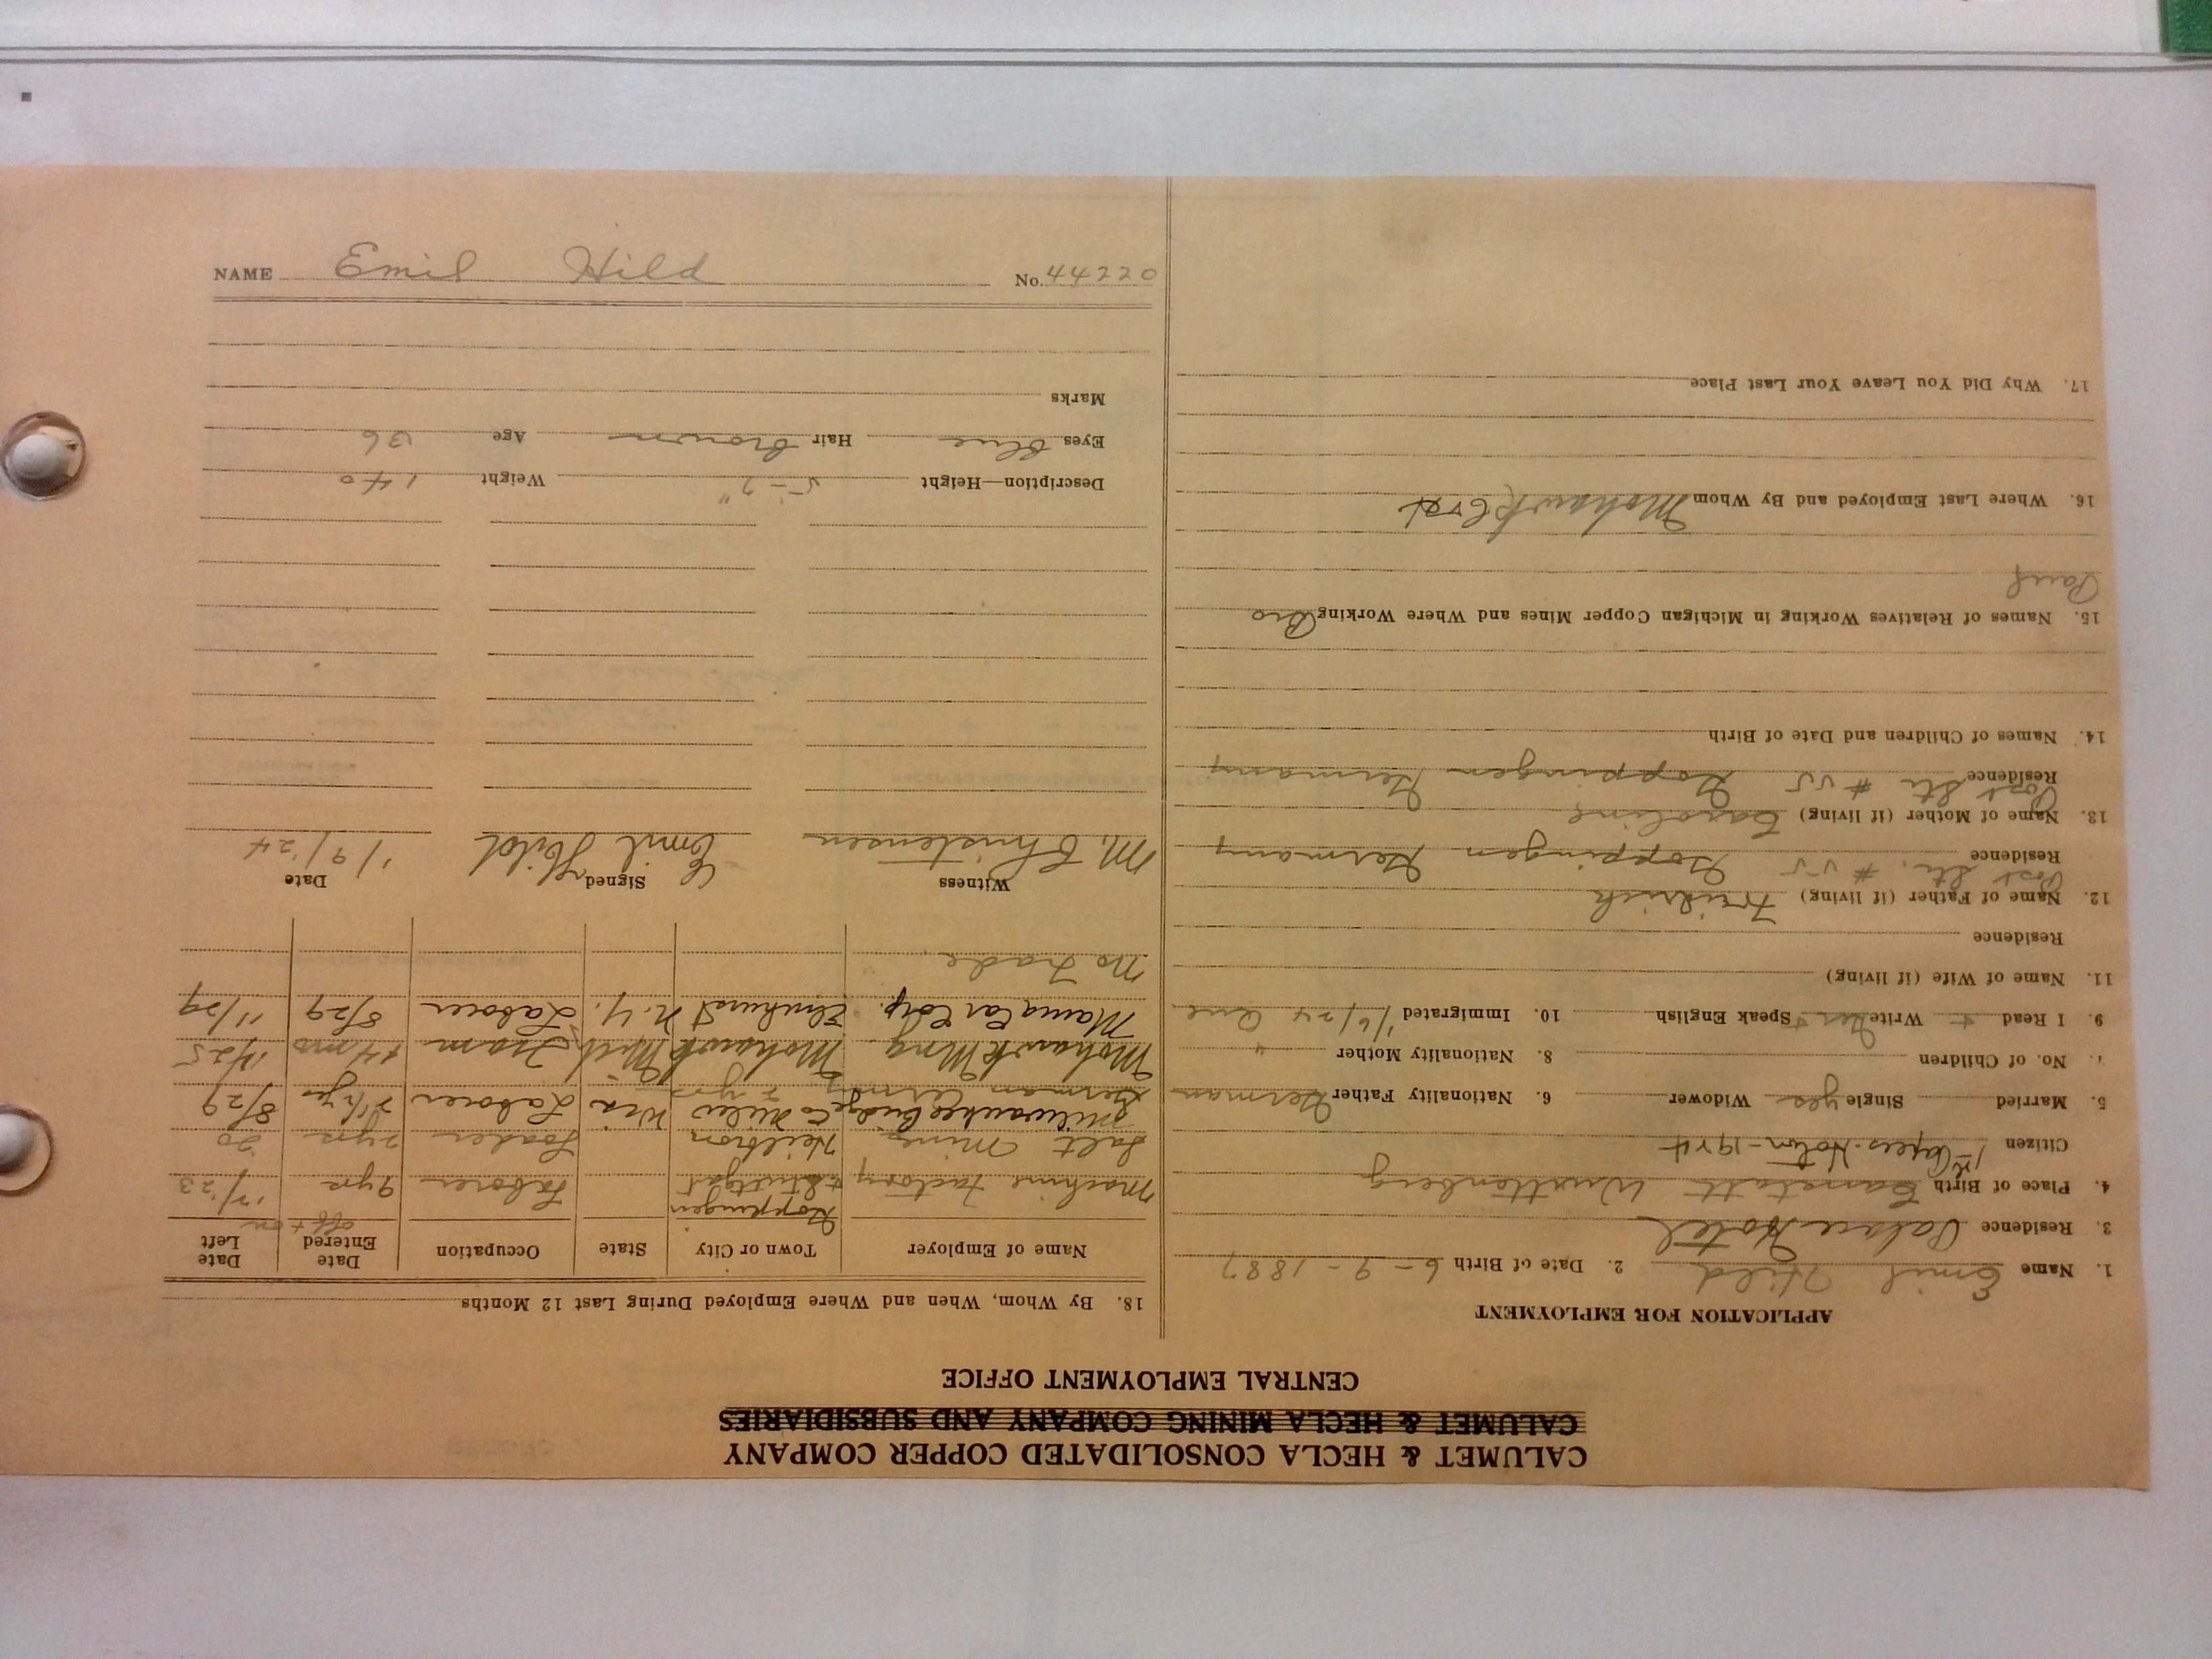 CALUMET & HECLA CONSOLIDATED COPPER COMPANY
CALUMET & HECLA MINING COMPANY AND SUBSIDIARIES
CENTRAL EMPLOYMENT OFFICE
APPLICATION FOR EMPLOYMENT
1. Name Emil Hild 2. Date of Birth 6-9-1887
3. Residence Palace Hotel
4. Place of Birth Cannstatt Wurttenberg
Citizen 1st Papers. Hotn-1924
5. Married Single yes Widower 6. Nationality Father German
7. No. of Children 8. Nationality Mother "
9. I Read + Write Ger + Speak English 10. Immigrated 1/6/24
11. Name of Wife (if living)
Residence
12. Name of Father (if living) Freidrich
Residence Post Str. #55 Goppingen Germany
13. Name of Mother (if living) Caroline
Residence Post Str #55 Goppingen Germany
14. Names of Children and Date of Birth
15. Names of Relatives Working in Michigan Copper Mines and Where Working Bro
Paul
16. Where Last Employed and By Whom Mohawk
17. Why Did You Leave Your Last Place
18. By Whom, When and Where Employed During Last 12 Months
Name of Employer Town or City State Occupation Date Entered Date Left
off + on
Machine Factory Goppingen + Stuttgart Laborer 9 yrs 12/23
Salt Mine Heilbron Loader 2 yrs 20
Milwaukee Bridge Co Milw Wis Laborer 2 1/2 yrs 8/29
German Army 2 yrs
Mohawk Mng. Mohawk Mich Tram 14 mo 4/25
Mauq Car Corp. Elmhurst N.Y. Laborer 8/29 11/29
No trade.
Witness Signed Date
M. Christensen Emil Hild 1/9/24
Description—Height 5-7" Weight 140
Eyes blue Hair brown Age 36
Marks
NAME Emil Hild No. 44220